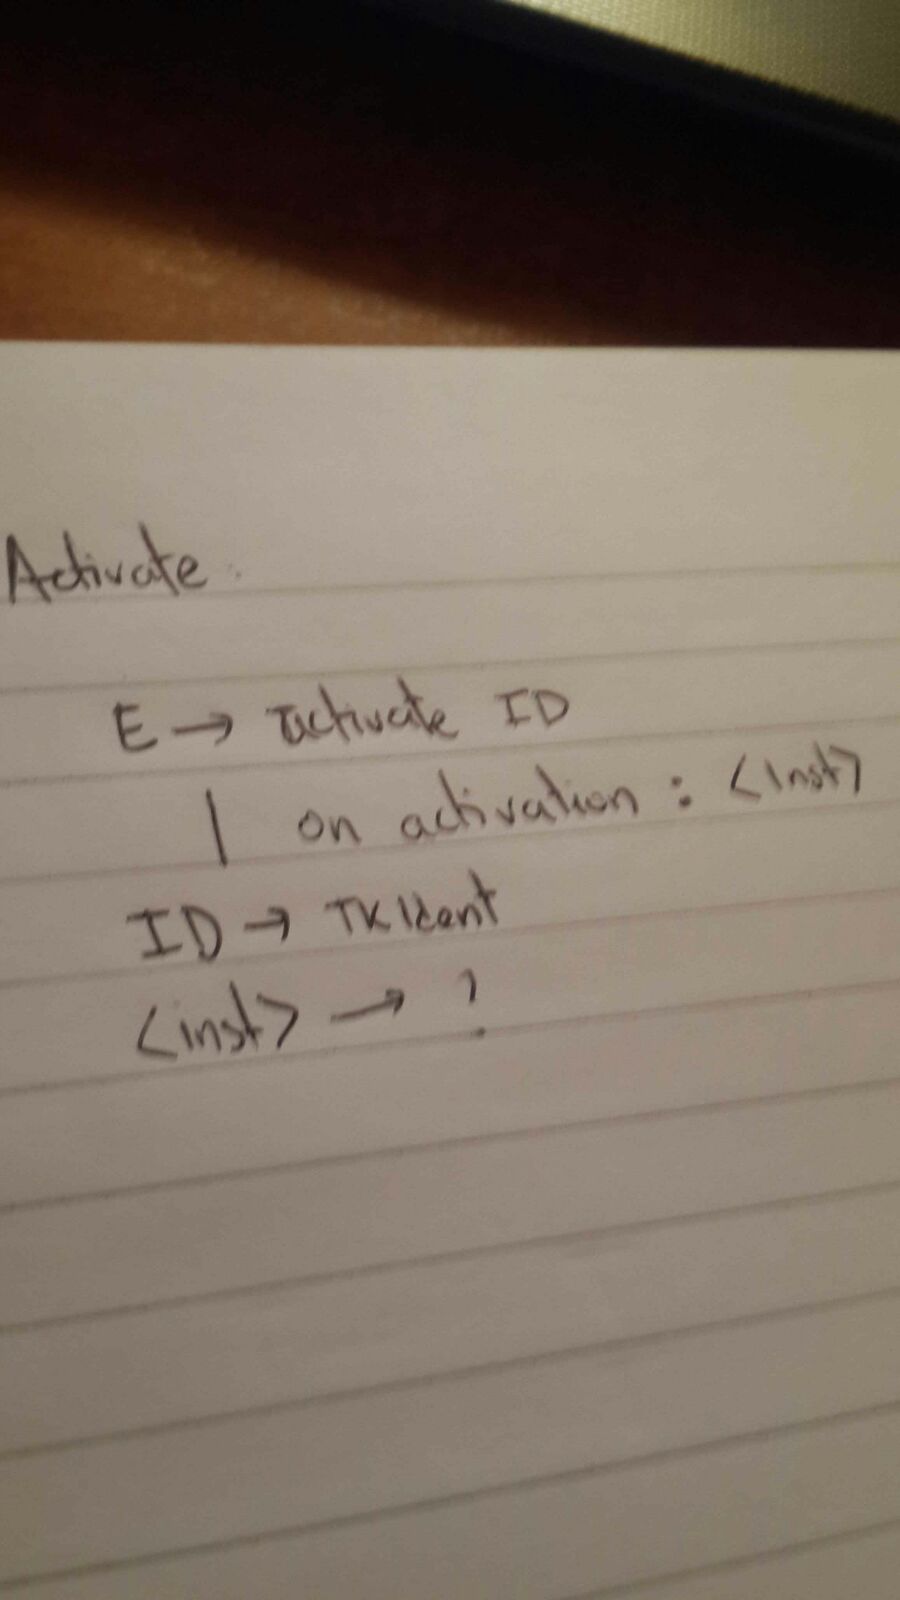 Activate.
E → activate ID
| on activation : <inst>
ID → TKIdent
<inst> → ?